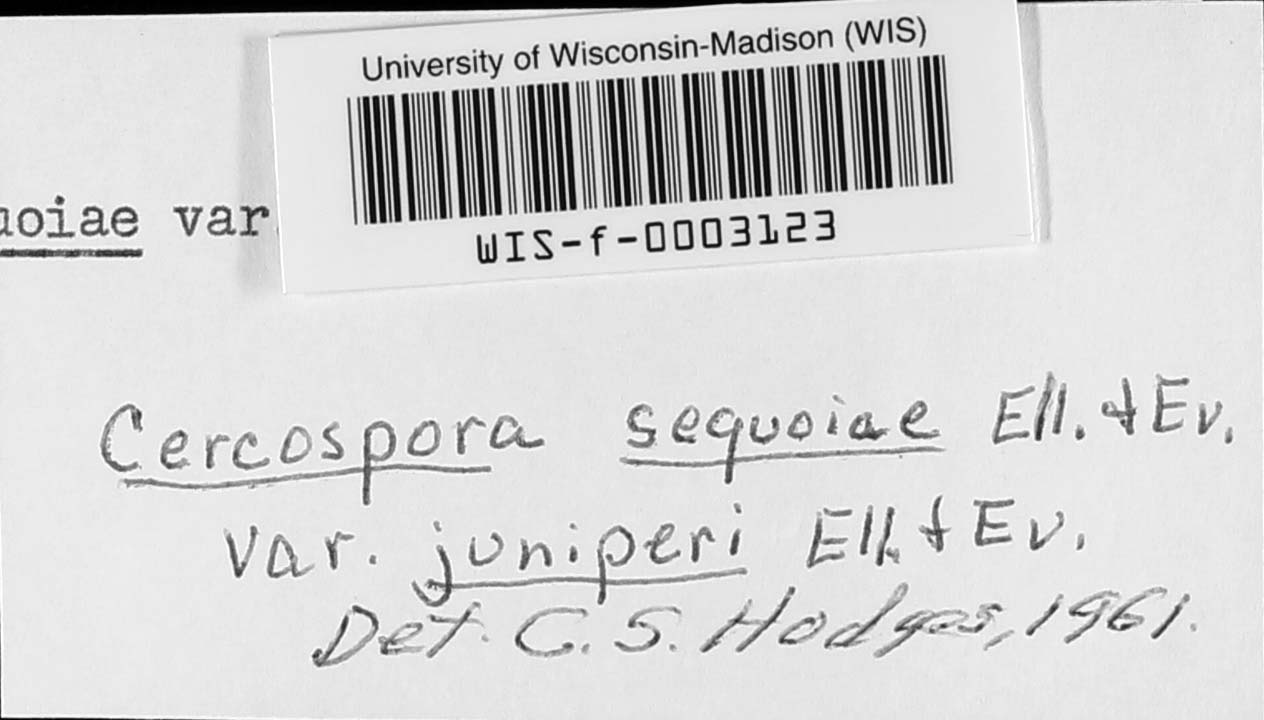 University of Wisconsin-Madison (WIS)
WIS-f-0003123
uoiae var
Cercospora sequoiae Ell. & Ev.
var. juniperi Ell. & Ev.
Det. C. S. Hodges, 1961.